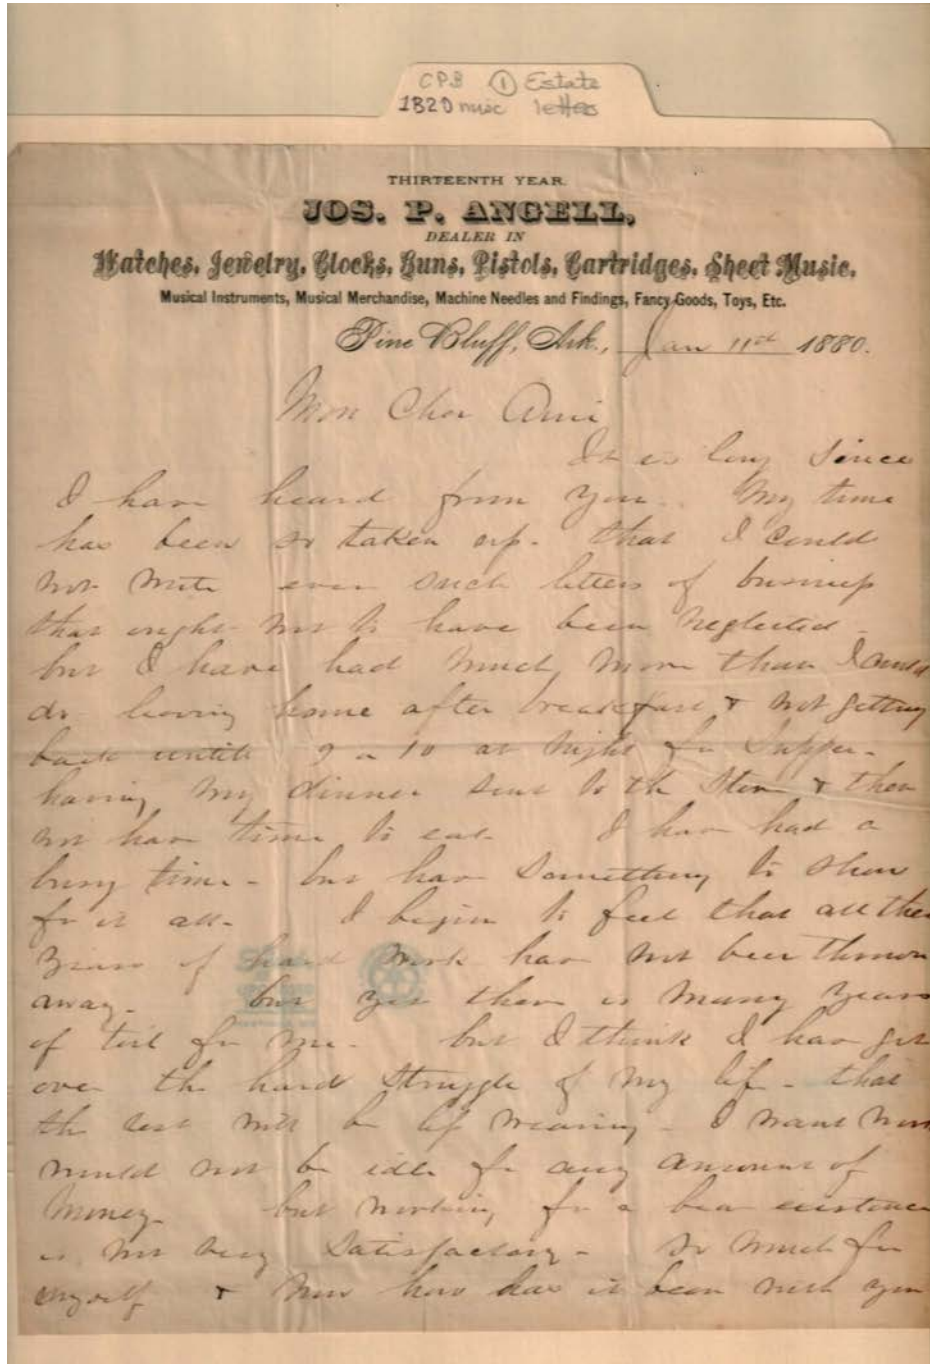 CPB ① Estate
1820 music letters
THIRTEENTH YEAR.
JOS. P. ANGELL,
DEALER IN
Watches, Jewelry, Clocks, Guns, Pistols, Cartridges, Sheet Music,
Musical Instruments, Musical Merchandise, Machine Needles and Findings, Fancy Goods, Toys, Etc.
Pine Bluff, Ark., Jan 11th 1880.
Mon Cher Ami
It is long since
I have heard from you. My time
has been so taken up - that I could
not write even such letters of business
that ought not to have been neglected -
but I have had much more than I could
do leaving home after breakfast & not getting
back untill 9 or 10 at night for supper -
having my dinner sent to the store & then
not have time to eat - I have had a
busy time - but have something to show
for it all - I begin to feel that all these
years of hard work have not been thrown
away - but yet there is many years
of toil for me - but I think I have got
over the hard struggle of my life - that
the rest will be less wearing - I
would not be idle for any amount of
money - but working for a bare existence
is not very satisfactory - so much for
myself & now how has it been with you